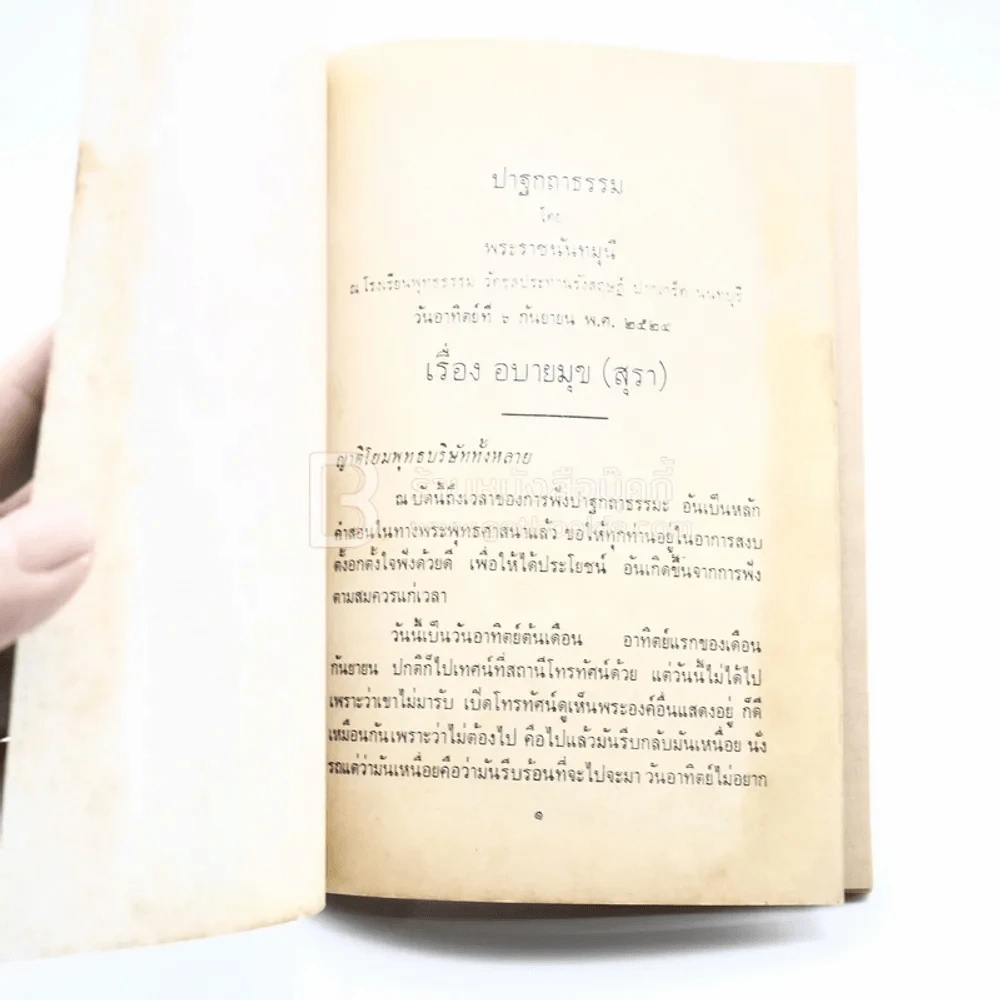 ปาฐกถาธรรม
โดย
พระราชนันทมุนี
ณ โรงเรียนพุทธธรรม วัดชลประทานรังสฤษฎ์ ปากเกร็ด นนทบุรี
วันอาทิตย์ที่ ๖ กันยายน พ.ศ. ๒๕๒๔
เรื่อง อบายมุข (สุรา)
ญาติโยมพุทธบริษัททั้งหลาย
ณ บัดนี้ถึงเวลาของการฟังปาฐกถาธรรมะ อันเป็นหลัก
คำสอนในทางพระพุทธศาสนาแล้ว ขอให้ทุกท่านอยู่ในอาการสงบ
ตั้งอกตั้งใจฟังด้วยดี เพื่อให้ได้ประโยชน์ อันเกิดขึ้นจากการฟัง
ตามสมควรแก่เวลา
วันนี้เป็นวันอาทิตย์ต้นเดือน อาทิตย์แรกของเดือน
กันยายน ปกติก็ไปเทศน์ที่สถานีโทรทัศน์ด้วย แต่วันนี้ไม่ได้ไป
เพราะว่าเขาไม่มารับ เปิดโทรทัศน์ดูเห็นพระองค์อื่นแสดงอยู่ ก็ดี
เหมือนกันเพราะว่าไม่ต้องไป คือไปแล้วมันรีบกลับมันเหนื่อย นั่ง
รถแต่ว่ามันเหนื่อยคือว่ามันรีบร้อนที่จะไปจะมา วันอาทิตย์ไม่อยาก
๑
B
ร้านหนังสือบุ๊คกี้